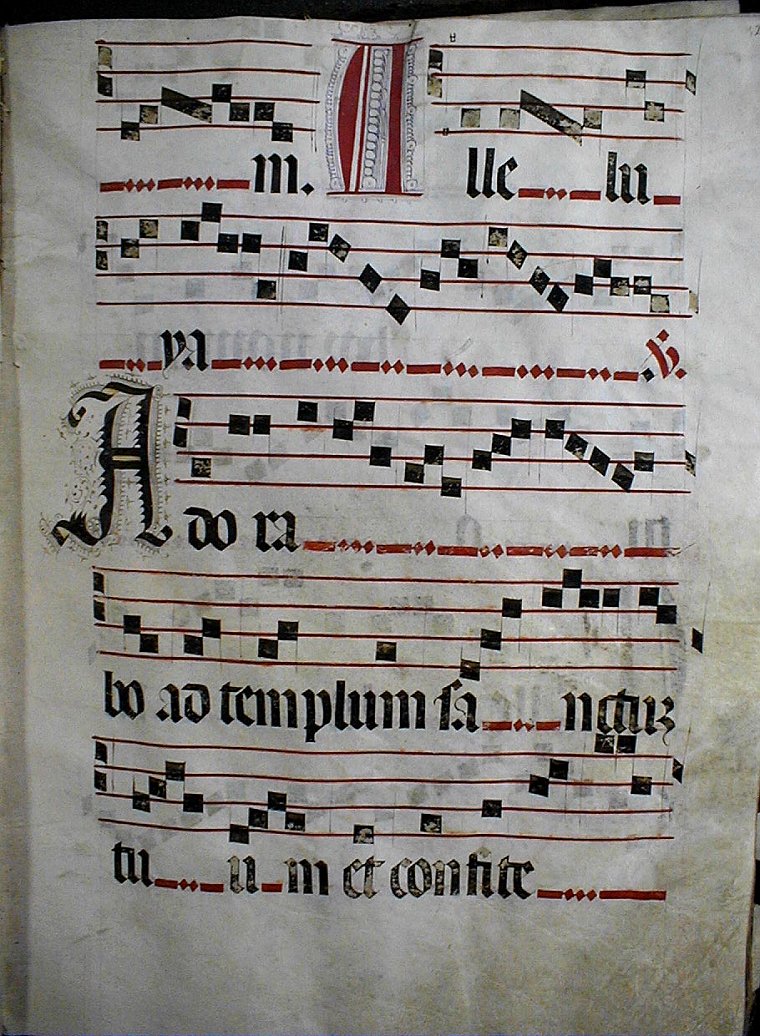 m. A lle lu
ya ℣.
A do ra
bo ad templum sa nctuz
tu u m et confite